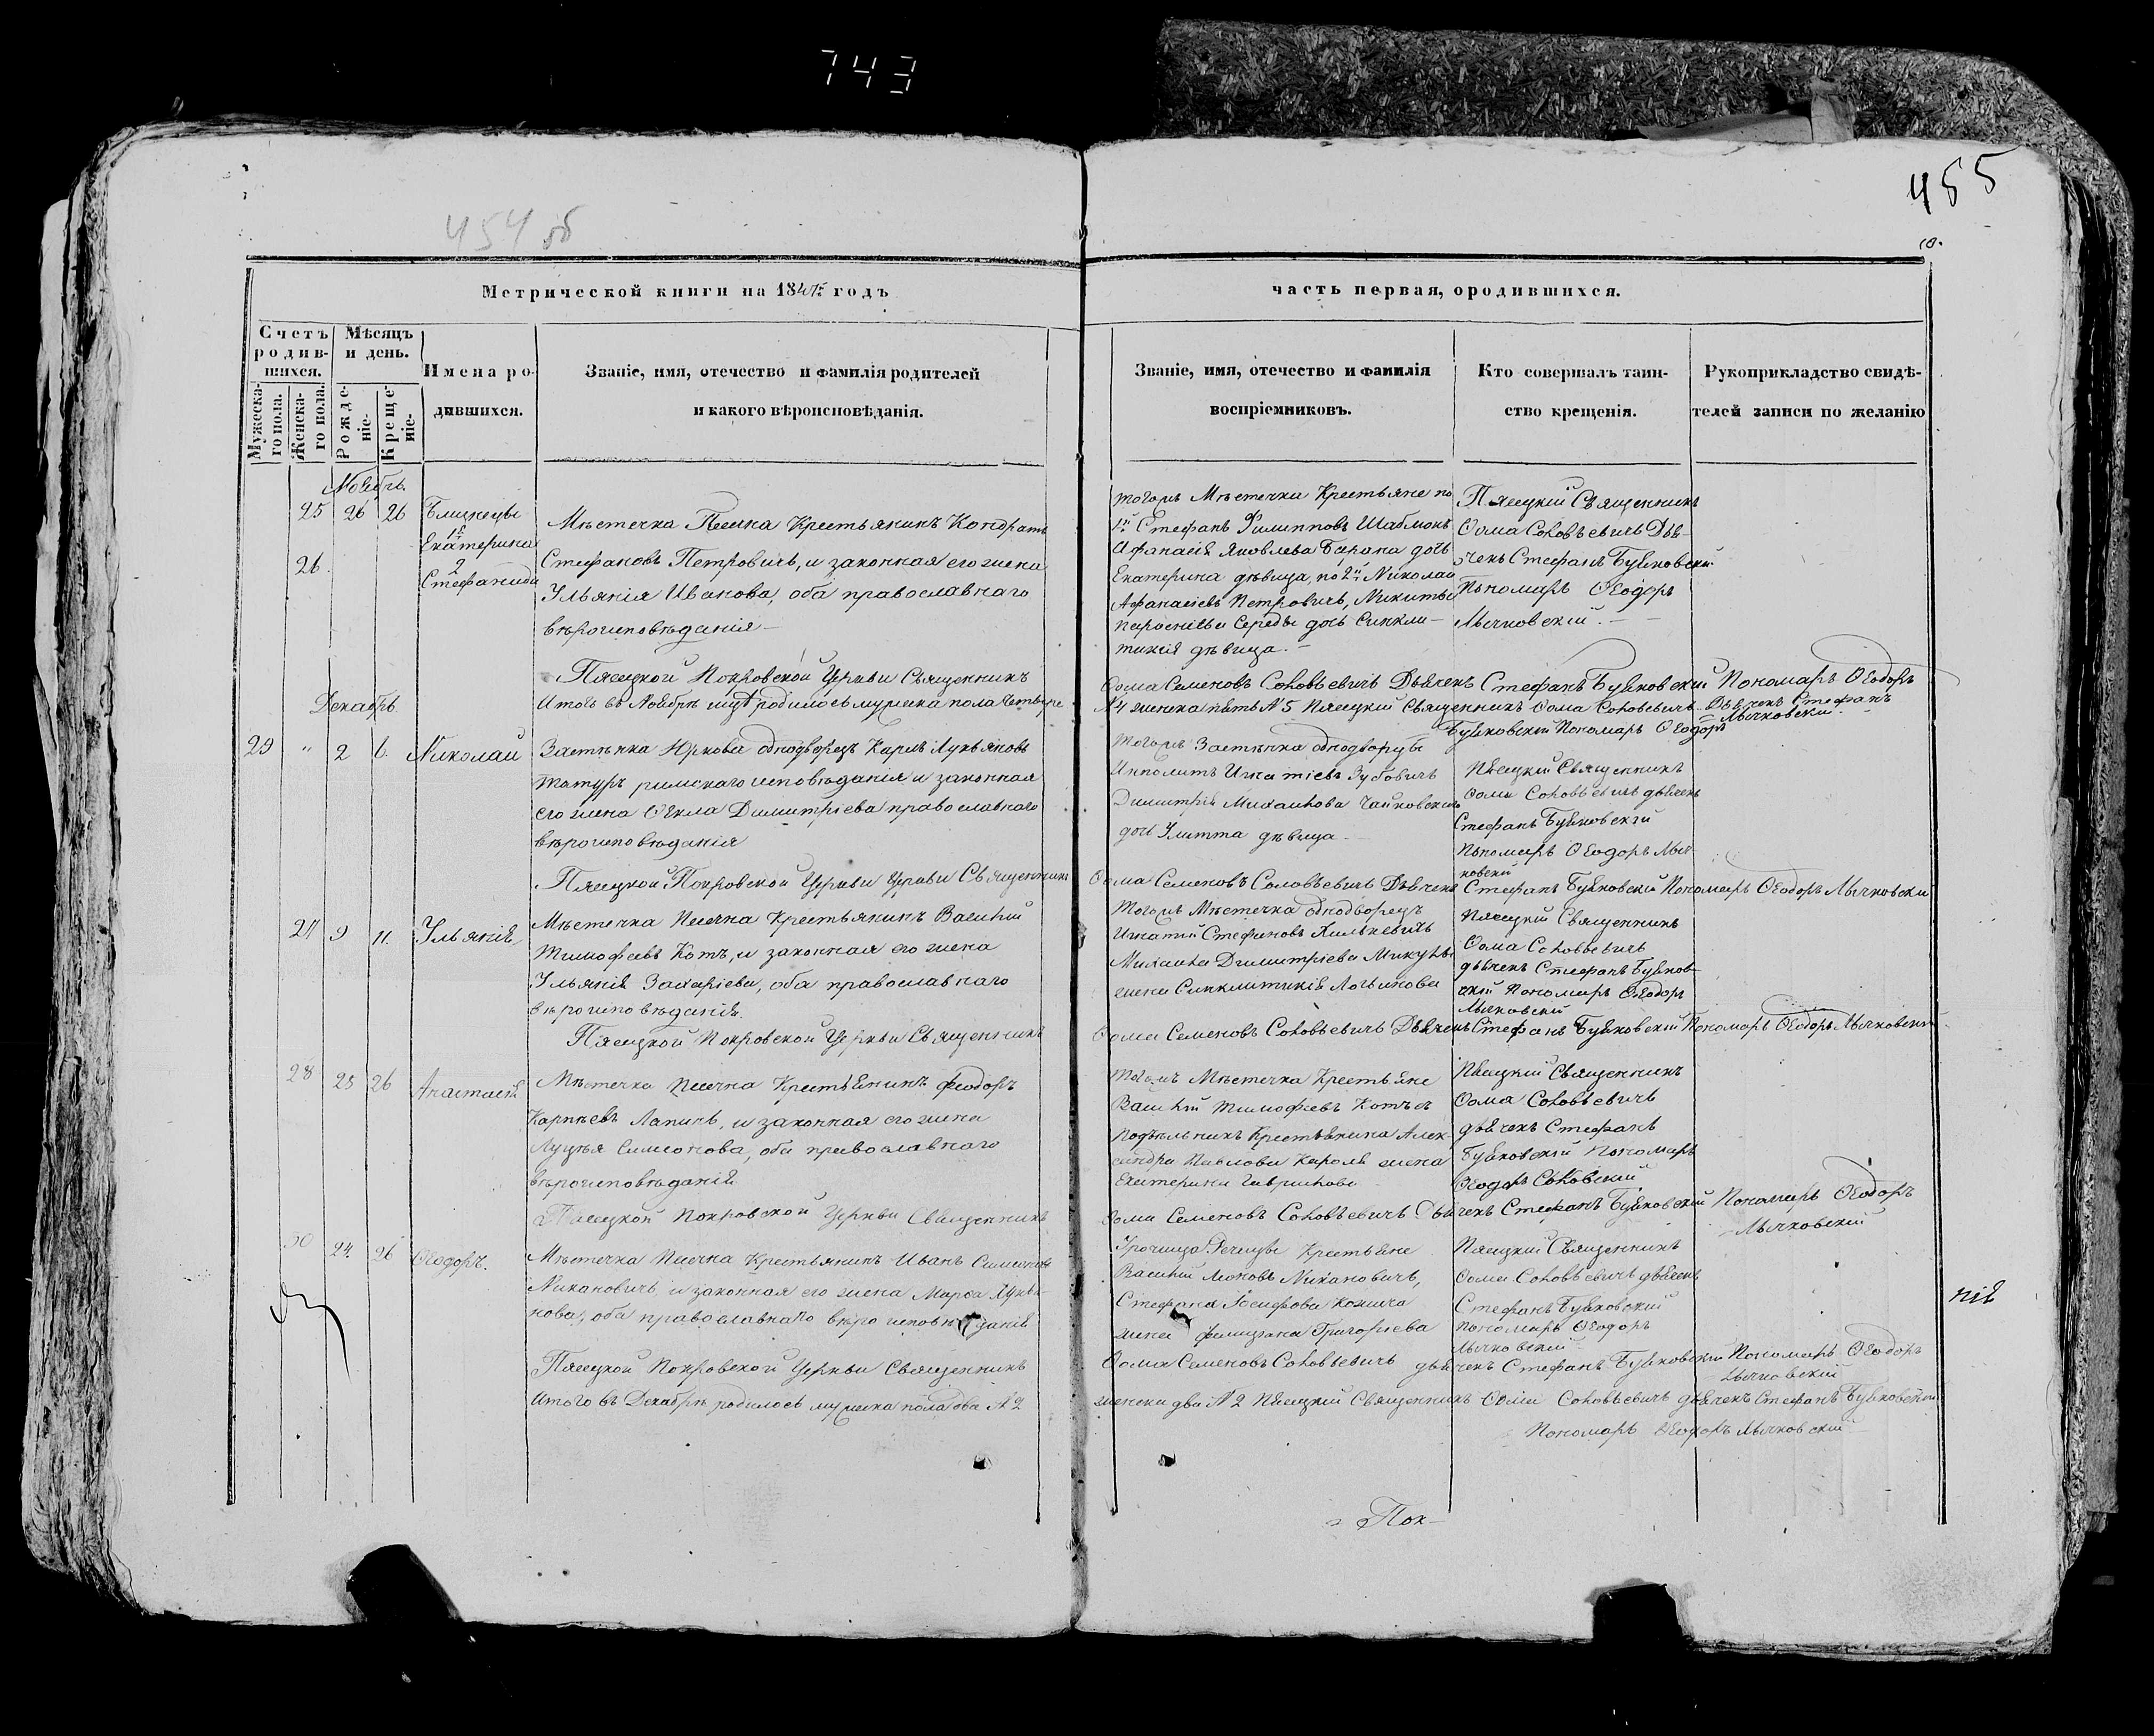 743
454 об
455
10.
Метрической книги на 184 годъ
часть первая, о родившихся.
Счетъ родив-шихся.
Мужеска-го пола.
Женска-го пола.
Мѣсяцъ и день.
Рожде-ніе.
Креще-ніе.
Имена ро-дившихся.
Званіе, имя, отечество и фамилія родителей
и какого вѣроисповѣданія.
Званіе, имя, отечество и фамилія
воспріемниковъ.
Кто совершалъ таин-
ство крещенія.
Рукоприкладство свидѣ-
телей записи по желанію
Ноябрь
25 26 26 Близнецы
1я
Екатерина
26.
2
Стефанида
Мѣстечка Песчна Крестьянинъ Кондратъ
Стефановъ Петровичъ, и законная его жена
Ульянія Иванова, оба православнаго
вѣроисповѣданія
тогожъ Мѣстечка Крестьяне по
1й Стефанъ Филипповъ Шаблюкъ
Афанасія Яковлева Барана дочь
Екатерина дѣвица, по 2й Николай
Афанасіевъ Петровичъ, Никиты
Середы дочь Синкли-
тикія дѣвица.
Пясецкій Священникъ
Ѳома Соловьевичъ Дья-
чекъ Стефанъ Буйковскій
Пономарь Ѳеодоръ
Лычковскій.
Пясецкой Покровской Церкви Священникъ
Ѳома Семеновъ Соловьевичъ Дьячекъ Стефанъ Буйковскій Пономарь Ѳеодоръ
Лычковскій.
Итого въ Ноябрѣ родилось мужеска пола четыре
№4 женска пять №5 Пясецкій Священникъ Ѳома Соловьевичъ Дьячекъ Стефанъ
Буйковскій Пономарь Ѳеодоръ
Декабрь
29 " 2 6. Николай
Застѣнка Юркова однодворецъ Карлъ Лукьяновъ
Татуръ римскаго исповѣданія и законная
его жена Ѳекла Димитріева православнаго
вѣроисповѣданія
тогожъ Застѣнка однодворцы
Ипполитъ Игнатіевъ Зубовичъ
Димитрія Михайлова Чайковскаго
дочь Улитта дѣвица
Пясецкій Священникъ
Ѳома Соловьевичъ дьячекъ
Стефанъ Буйковскій
Пономарь Ѳеодоръ Лыч-
ковскій
Пясецкой Покровской Церкви Церкви Священникъ
Ѳома Семеновъ Соловьевичъ Дьячекъ Стефанъ Буйковскій Пономарь Ѳеодоръ Лычковскій
27 9 11. Ульянія
Мѣстечка Песчна Крестьянинъ Василій
Тимофеевъ Котъ, и законная его жена
Ульянія Захаріева, оба православнаго
вѣроисповѣданія.
тогожъ Мѣстечка однодворецъ
Игнатій Стефановъ Хилькевичъ
Михаила Димитріева Микулы
жена Синклитикія Логвинова
Пясецкій Священникъ
Ѳома Соловьевичъ
дьячекъ Стефанъ Буйков-
скій Пономарь Ѳеодоръ
Лычковскій
Пясецкой Покровской Церкви Священникъ
Ѳома Семеновъ Соловьевичъ Дьячекъ Стефанъ Буйковскій Пономарь Ѳеодоръ Лычковскій
28 25 26 Анастасія
Мѣстечка Песчна Крестьянинъ Феодоръ
Карпѣевъ Лапичъ, и законная его жена
Луція Симеонова, оба православнаго
вѣроисповѣданія
тогожъ Мѣстечка Крестьяне
Василій Тимофеевъ Котъ
Крестьянина Алек-
сандра Павлова Король жена
Екатерина Гаврилова
Пясецкій Священникъ
Ѳома Соловьевичъ
дьячекъ Стефанъ
Буйковскій Пономарь
Ѳеодоръ
Пясецкой Покровской Церкви Священникъ
Ѳома Семеновъ Соловьевичъ Дьячекъ Стефанъ Буйковскій Пономарь Ѳеодоръ
Лычковскій
30 24. 26 Ѳеодоръ.
Мѣстечка Песчна Крестьянинъ Иванъ Симеоновъ
Михановичъ и законная его жена Марѳа Лукья-
нова, оба православнаго вѣроисповѣданія
Урочища Речицы Крестьяне
Василій Михановичъ,
Стефана Іосифова
жена Григорьева
Пясецкій Священникъ
Ѳома Соловьевичъ дьячекъ
Стефанъ Буйковскій
Пономарь Ѳеодоръ
Лычковскій
ніе
Пясецкой Покровской Церкви Священникъ
Ѳома Семеновъ Соловьевичъ дьячекъ Стефанъ Буйковскій Пономарь Ѳеодоръ
Лычковскій
Итого въ Декабрѣ родилось мужеска пола два №2
женска два №2 Пясецкій Священникъ Ѳома Соловьевичъ дьячекъ Стефанъ Буйковскій
Пономарь Ѳеодоръ Лычковскій
Пок-